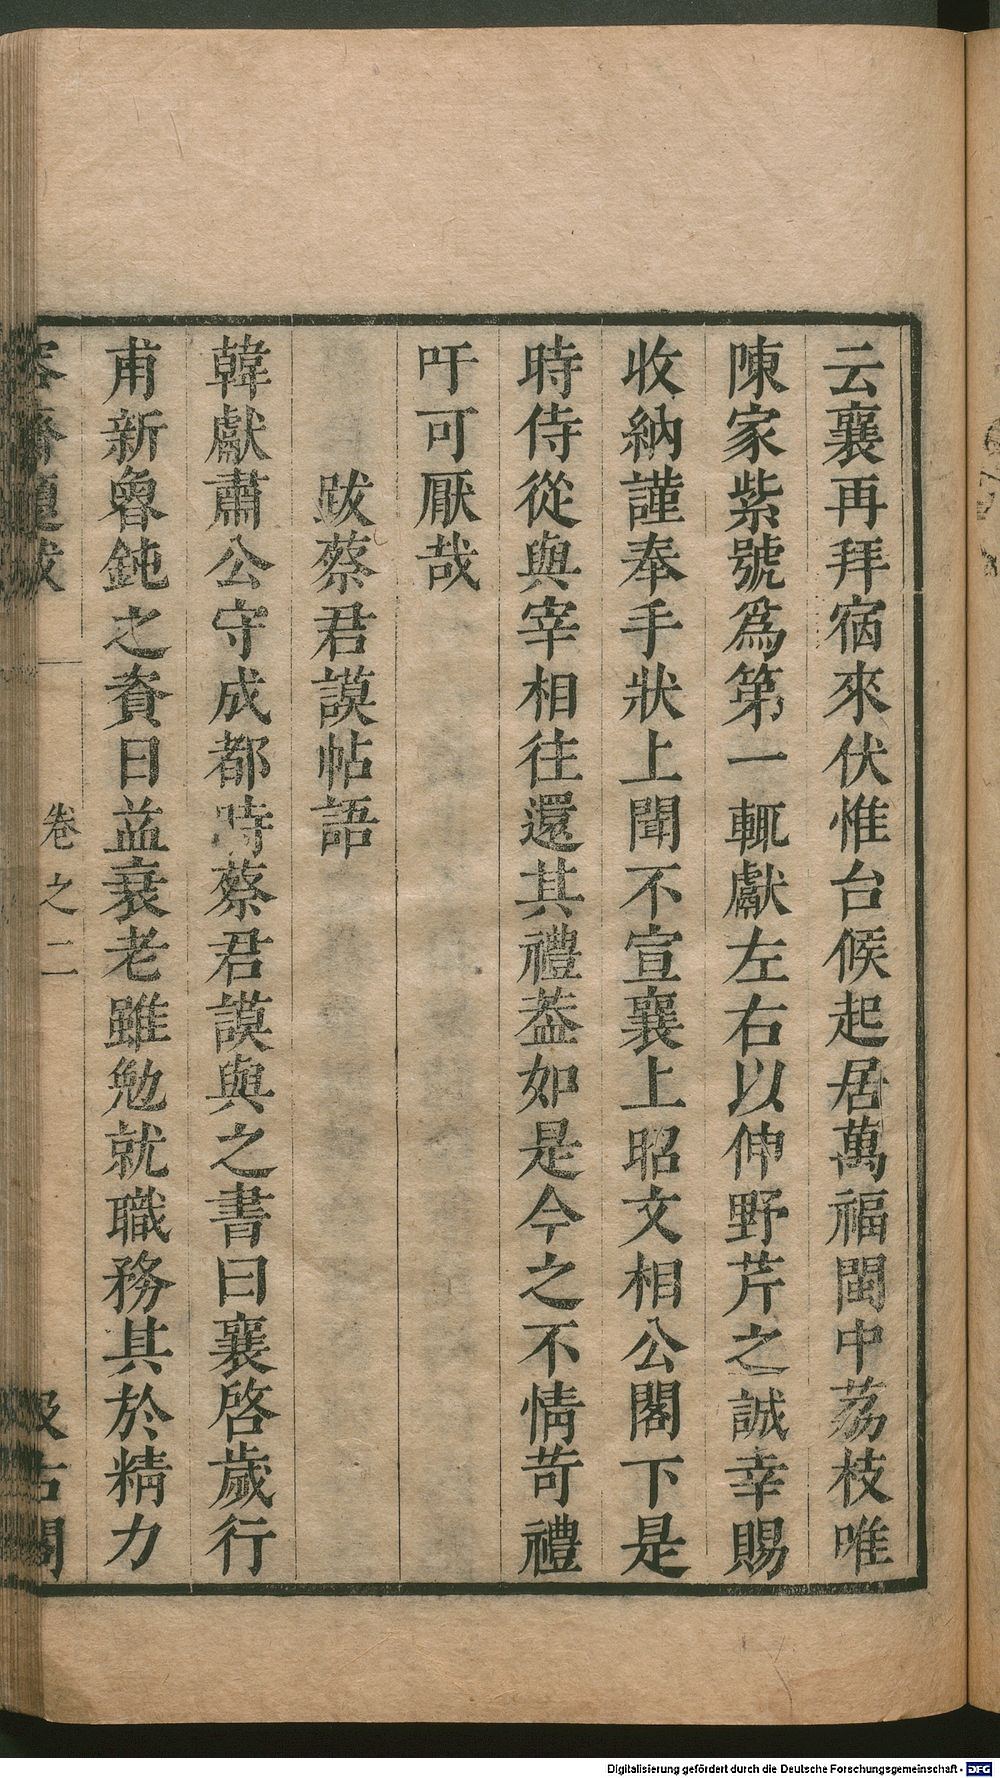 云襄再拜宿來伏惟台候起居萬福閩中荔枝唯
陳家紫號爲第一輒獻左右以伸野芹之誠幸賜
收納謹奉手狀上聞不宣襄上昭文相公閣下是
時侍從與宰相往還其禮葢如是今之不情苛禮
吁可厭哉
跋蔡君謨帖語
韓獻肅公守成都時蔡君謨與之書曰襄啓歲行
甫新魯鈍之資日益衰老雖勉就職務其於精力
容齋題跋 卷之二 汲古閣
Digitalisierung gefördert durch die Deutsche Forschungsgemeinschaft - DFG